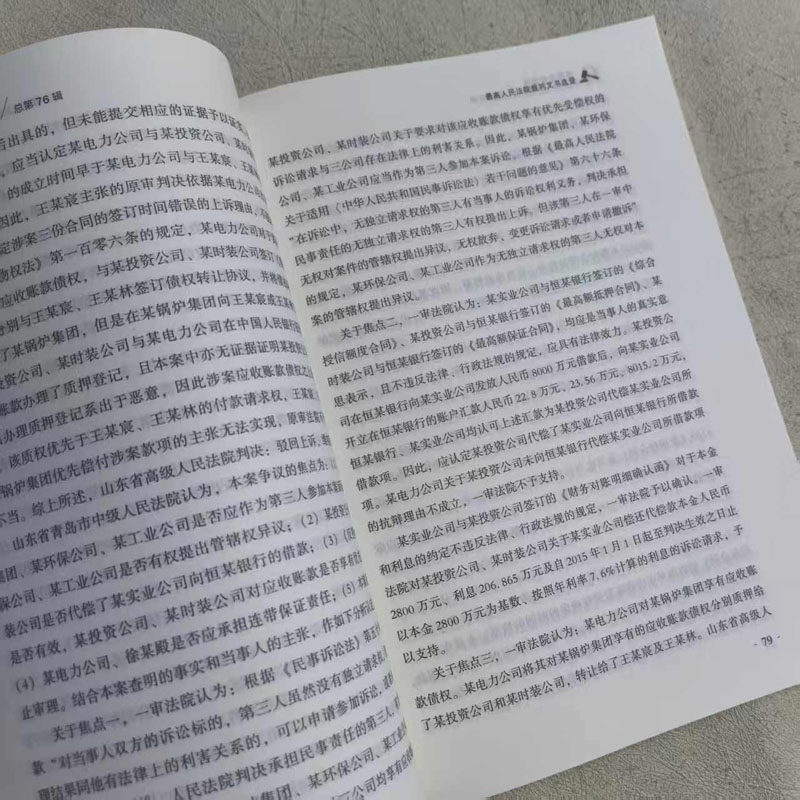 总第76辑
后出具的，但未能提交相应的证据予以证
，应当认定某电力公司与某投资公司、某
的成立时间早于某电力公司与王某宸、王某
因此，王某宸主张的原审判决依据某电力公
定涉案三份合同的签订时间错误的上诉理由，
物权法》第一百零六条的规定，某电力公司对
应收账款债权，与某投资公司、某时装公司签
分别与王某宸、王某林签订债权转让协议，并将
了某锅炉集团，但是在某锅炉集团向王某宸或王某
投资公司、某时装公司与某电力公司在中国人民银行
账款办理了质押登记，且本案中亦无证据证明某投资
办理质押登记系出于恶意，因此涉案应收账款债权
，该质权优先于王某宸、王某林的付款请求权，王某
锅炉集团优先偿付涉案款项的主张无法实现，原审法
不当。综上所述，山东省高级人民法院判决：驳回上诉，
山东省青岛市中级人民法院认为，本案争议的焦点为：
集团、某环保公司、某工业公司是否应作为第三人参加本案
某环保公司、某工业公司是否有权提出管辖权异议；（2）某投
装公司是否代偿了某实业公司向恒某银行的借款；（3）
是否有效，某投资公司、某时装公司对应收账款是否享有
（4）某电力公司、徐某殿是否应承担连带保证责任；（5）本
止审理。结合本案查明的事实和当事人的主张，作如下分析
关于焦点一，一审法院认为：根据《民事诉讼法》第五
款“对当事人双方的诉讼标的，第三人虽然没有独立请求权
理结果同他有法律上的利害关系的，可以申请参加诉讼，或
人民法院判决承担民事责任的第三人，有
集团、某环保公司、某工
公司均对享有应
最高人民法院裁判文书选登
某投资公司、某时装公司关于要求对该应收账款债权享有优先受偿权的
诉讼请求与三公司存在法律上的利害关系。因此，某锅炉集团、某环保
公司、某工业公司应当作为第三人参加本案诉讼。根据《最高人民法院
关于适用〈中华人民共和国民事诉讼法〉若干问题的意见》第六十六条
“在诉讼中，无独立请求权的第三人有当事人的诉讼权利义务，判决承担
民事责任的无独立请求权的第三人有权提出上诉。但该第三人在一审中
无权对案件的管辖权提出异议，无权放弃、变更诉讼请求或者申请撤诉”
的规定，某环保公司、某工业公司作为无独立请求权的第三人无权对本
案的管辖权提出异议。
关于焦点二，一审法院认为：某实业公司与恒某银行签订的《综合
授信额度合同》、某投资公司与恒某银行签订的《最高额抵押合同》、某
时装公司与恒某银行签订的《最高额保证合同》，均应是当事人的真实意
思表示，且不违反法律、行政法规的规定，应具有法律效力。某投资公
司在恒某银行向某实业公司发放人民币8000万元借款后，向某实业公司
开立在恒某银行的账户汇款人民币22.8万元、23.56万元、8015.2万元，
恒某银行、某实业公司均认可上述汇款为某投资公司代偿某实业公司所
借款项。因此，应认定某投资公司代偿了某实业公司向恒某银行所借款
项。某电力公司关于某投资公司未向恒某银行代偿某实业公司所借款项
的抗辩理由不成立，一审法院不予支持。
某实业公司与某投资公司签订的《财务对账明细确认函》对于本金
和利息的约定不违反法律、行政法规的规定，一审法院予以确认。一审
法院对某投资公司、某时装公司关于某实业公司偿还代偿款本金人民币
2800万元、利息206.865万元及自2015年1月1日起至判决生效之日止
以本金2800万元为基数、按照年利率7.6%计算的利息的诉讼请求，予
以支持。
关于焦点三，一审法院认为：某电力公司对某锅炉集团享有应收账
款债权。某电力公司将其对某锅炉集团享有的应收账款债权分别质押给
了某投资公司和某时装公司，转让给了王某宸及王某林。山东省高级人
· 79 ·